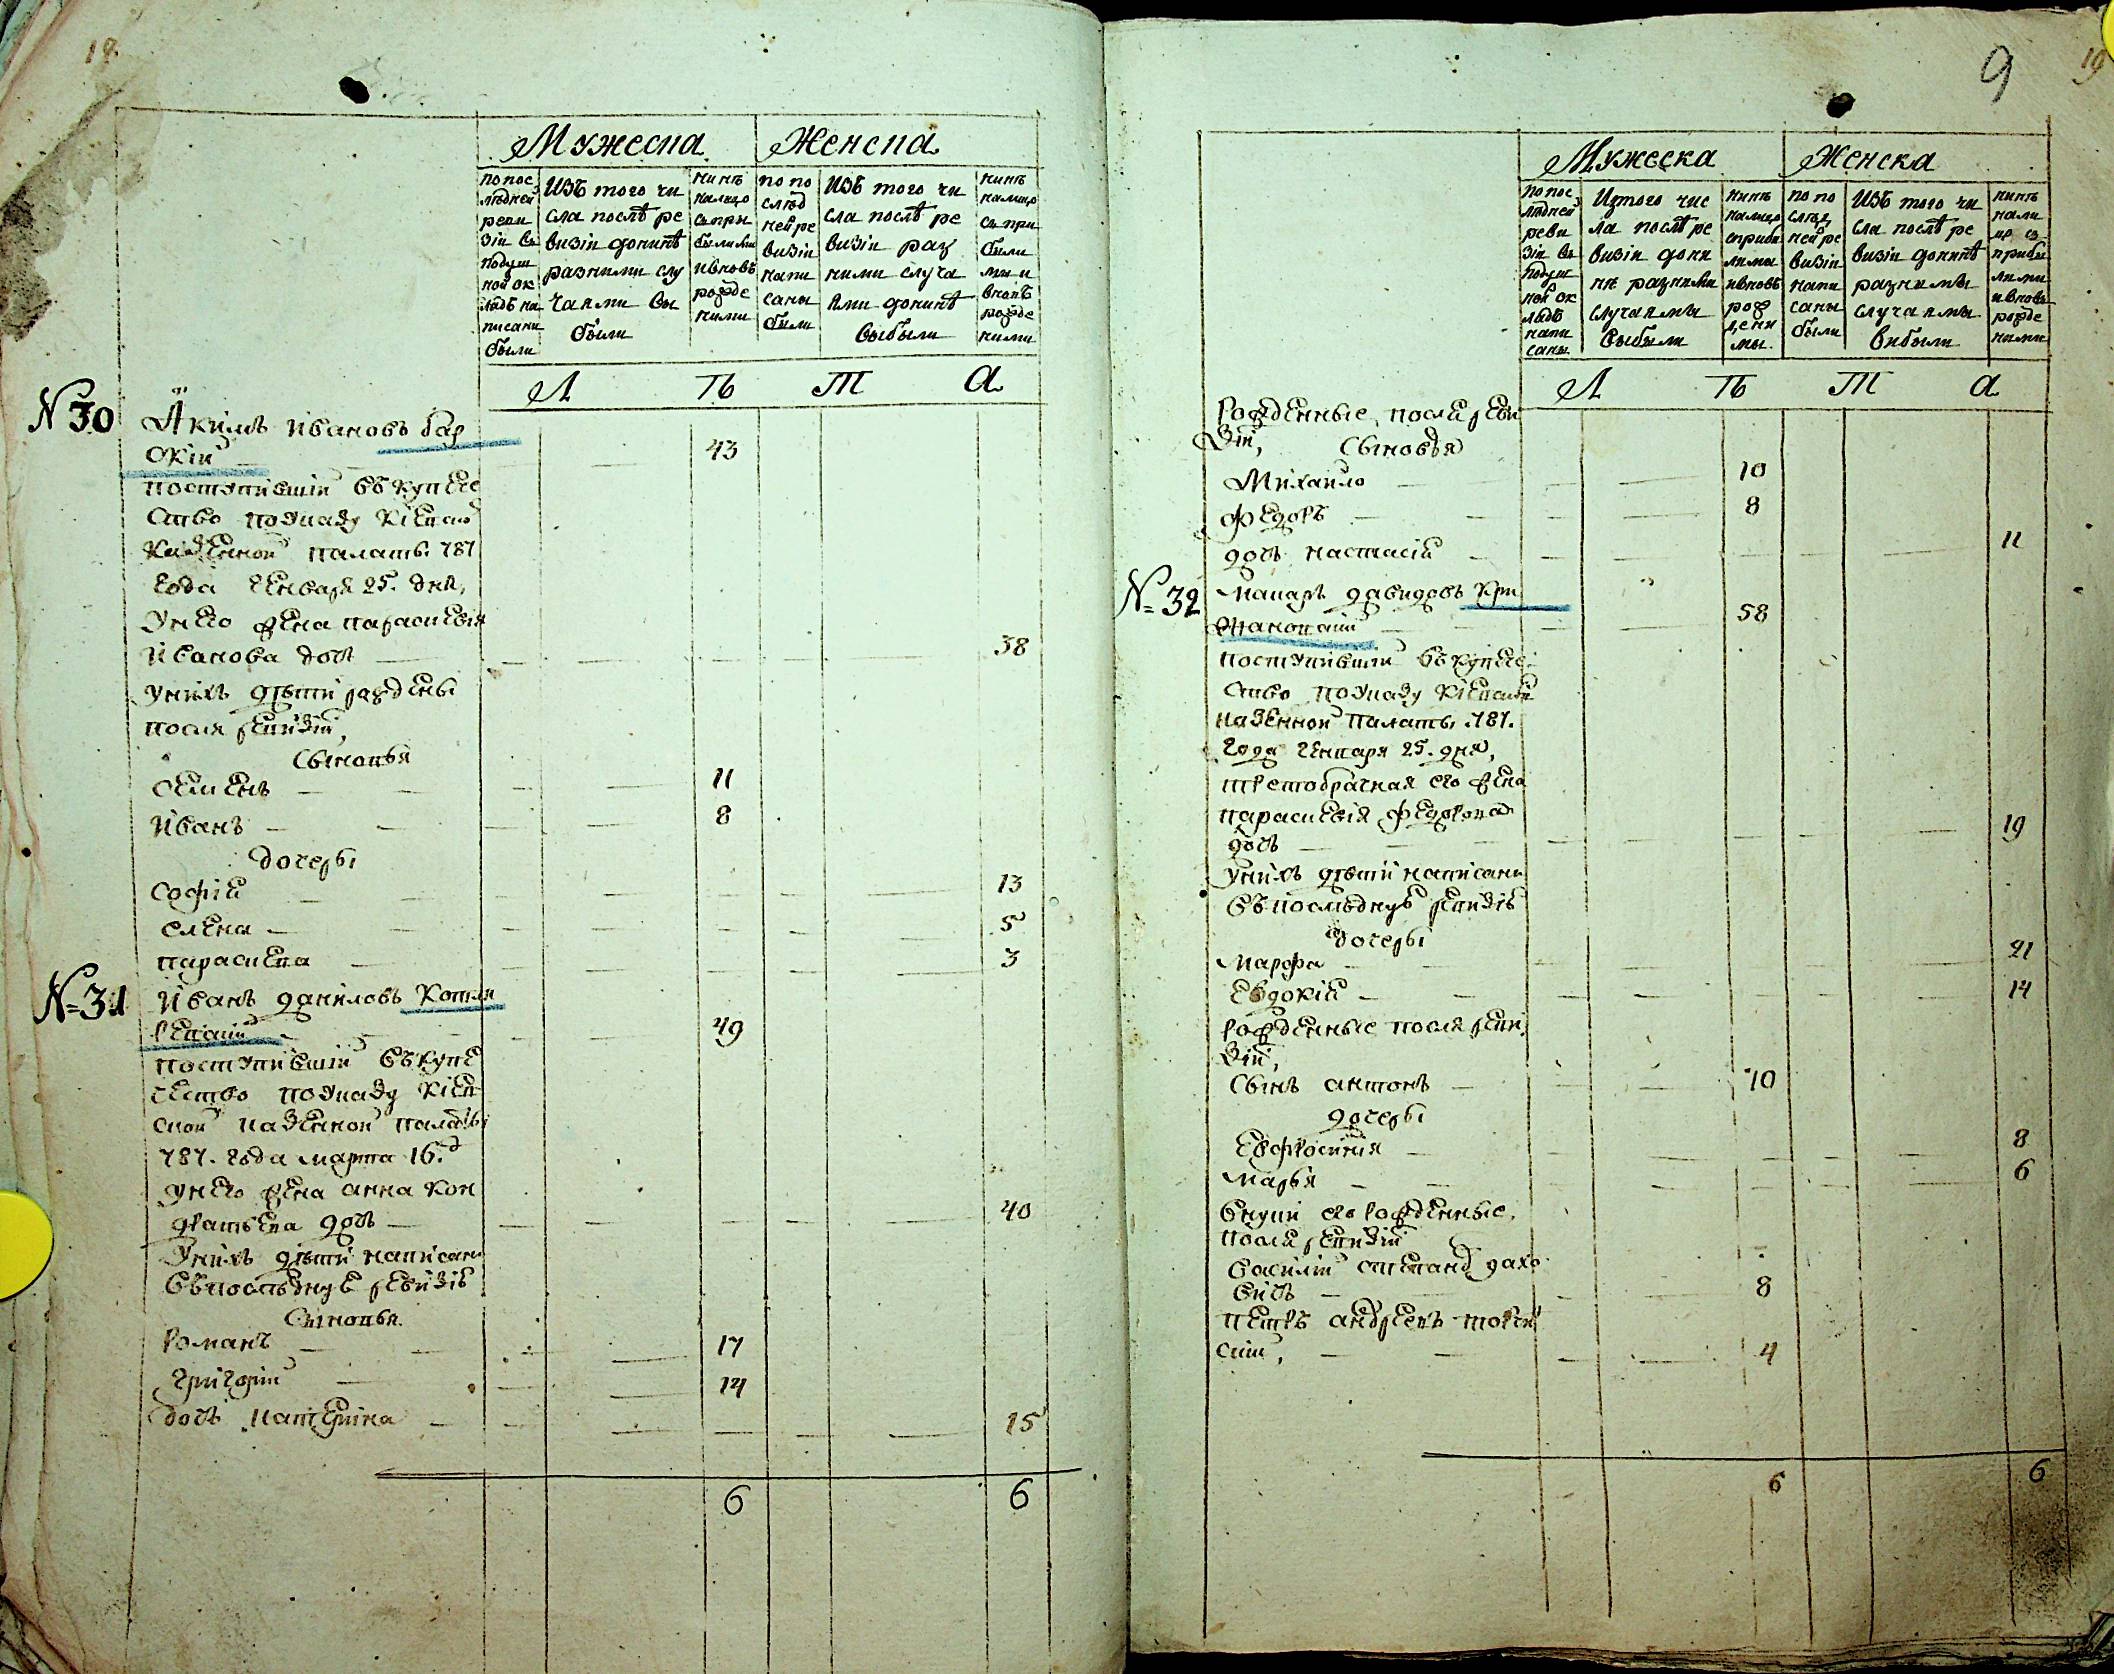 18
Мужеска Женска
по пос
лѣдней
реви
зіи въ
подуш
ной ок
ладѣ на
писани
были
Изъ того чи
сла послѣ ре
визіи донинѣ
разними слу
чаями вы
были
нинѣ
налицо
съ при
былими
ивновъ
рожде
ними
по по
слѣд
ней ре
визіи
напи
саны
были
Изъ того чи
сла послѣ ре
визіи раз
ними случа
ями донинѣ
выбыли
нинѣ
налицо
съ при
были
ми и
вновъ
рожде
ними
Л Ѣ Т А
№ 30 Якимъ Ивановъ бар
скій 43
поступившій въ купече
ство по указу кіевско
казенной палаты 787
года генваря 25. дня,
у него жена параскевія
Иванова дочь 38
у нихъ дѣти рождены
посля ревизіи,
сыновья
семенъ 11
иванъ 8
дочеры
софія 13
елена 5
параскева 3
№ 31 Иванъ даниловъ Котля
ревскій 49
поступившій въ купе
чество по указу кіев
ской казенной палаты
787. года марта 16. д
у него жена анна кон
дратьева дочь 40
у нихъ дѣти написани
въ послѣднуе ревизіе
сыновья
романъ 17
григорій 14
дочь катерина 15
6 6
9 19
Мужеска Женска
по пос
лѣдней
реви
зіи въ
подуш
ной ок
ладѣ
напи
саны
Изтого чис
ла послѣ ре
визіи дони
нѣ разними
случаями
выбыли
нинѣ
налицо
сприбы
лими
ивновъ
рож
дени
мы.
по по
слѣд
ней ре
визіи
напи
саны
были
Изъ того чи
сла послѣ ре
визіи донинѣ
разнимы
случаямы
вибыли
нинѣ
нали
цо съ
прибы
лими
ивновъ
рожде
ними
Л Ѣ Т А
рожденные после реви
зіи, сыновья
Михайло 10
федоръ 8
дочь настасія 11
№ 32 макаръ давидовъ Кри
жановскій 58
поступивши въ купече
ство по указу кіевской
казенной палаты .787.
года генваря 25. дня,
третобрачная его жена
параскевія федорова
дочь 19
у нихъ дѣти написани
въ послѣднуе ревизіе
дочеры
марфа 21
евдокія 14
рожденные посля реви
зіи,
сынъ антонъ 10
дочеры
ефросинія 8
марья 6
внуки его рожденные,
после ревизіи
василій
вичъ 8
петръ андреевъ
скій, 4
6 6